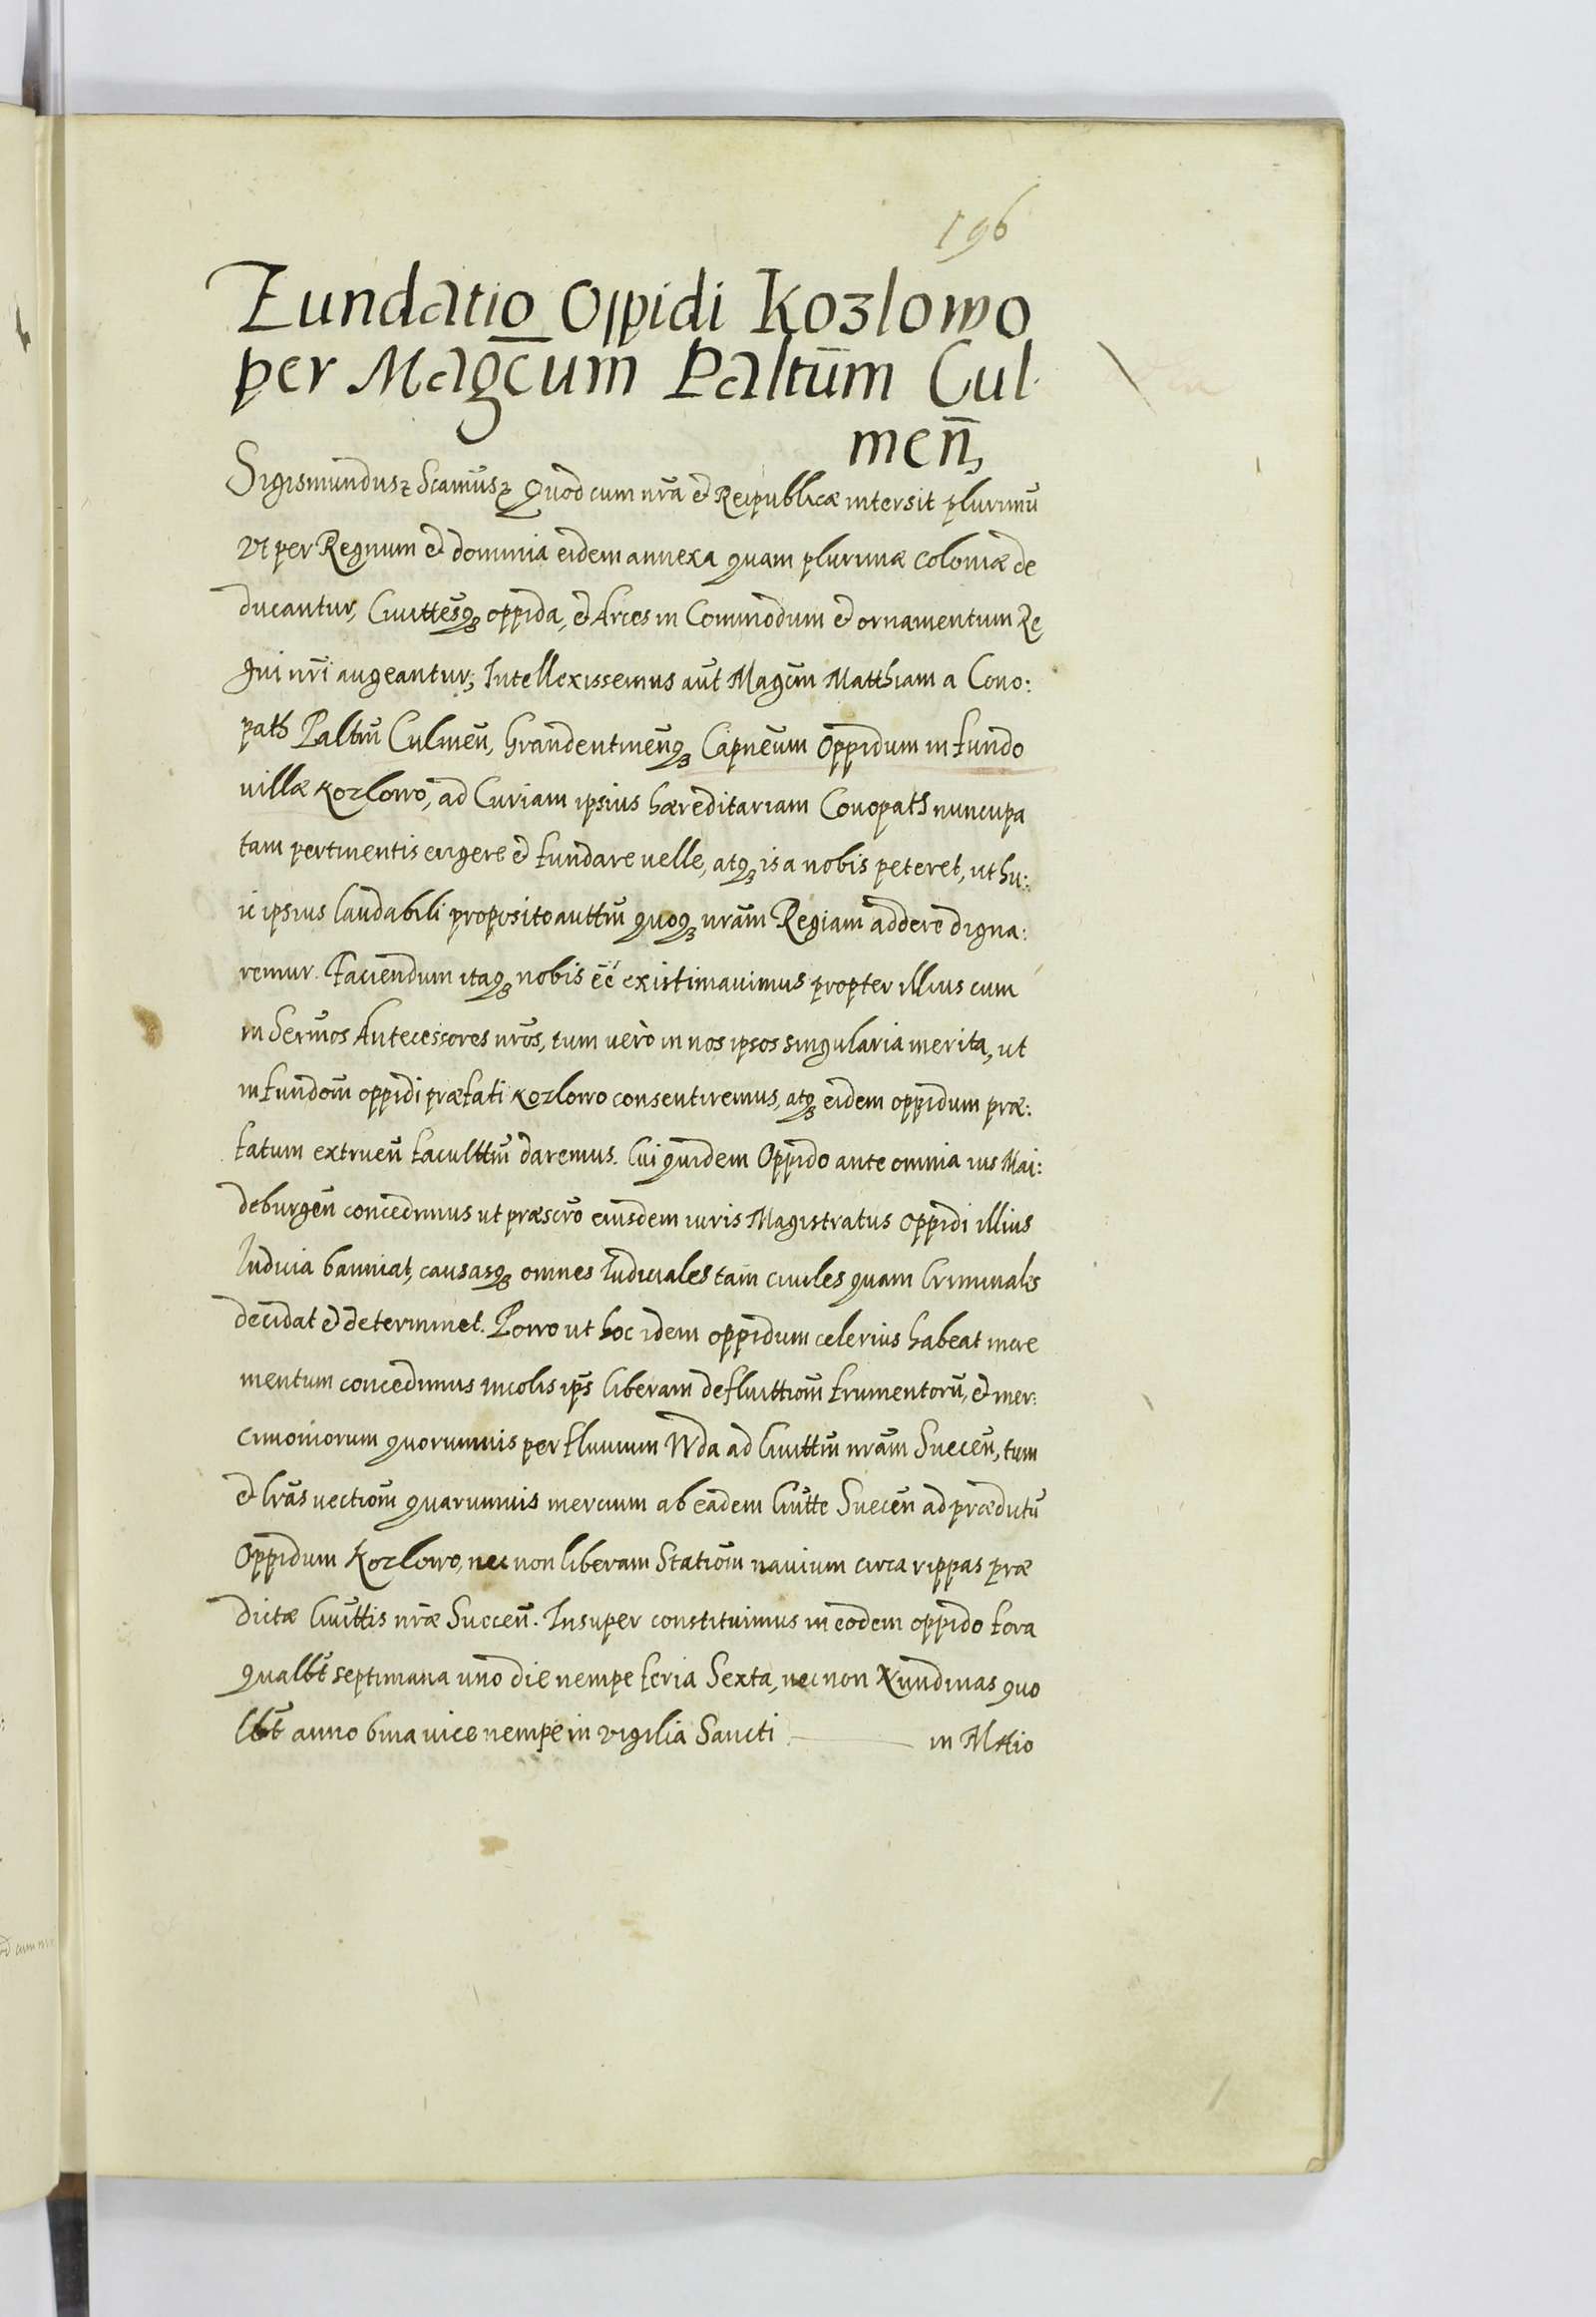 196
Fundatio Oppidi Kozlowo
per Magc̄um Paltūm Cul
men̄,
Sigismundus z Scamūs z Quod cum nr̄a et Reipublicæ intersit plurimū
Vt per Regnum et dominia eidem annexa quam plurimæ coloniæ de
ducantur, Ciuittesq3 oppida, et Arces in Commodum et ornamentum Re
gni nr̄i augeantur; Intellexissemus aūt Magc̄m Matthiam a Cono:
path Paltm̄ Culmen̄, Grandentinen̄q3 Capneūm Oppidum in fundo
villæ Kozlowo, ad Curiam ipsius hæreditariam Conopath nuncupa
tam pertinentis erigere et fundare uelle, atq3 is a nobis peteret, ut hu:
ic ipsius laudabili proposito auttm̄ quoq3 nr̄am Regiam addere digna:
remur. Faciendum itaq3 nobis ēē existimauimus propter illius cum
in Serm̄os Antecessores nr̄os, tum uerò in nos ipsos singularia merita, ut
in fundom̄ oppidi præfati Kozlowo consentiremus, atq3 eidem oppidum præ:
fatum extruen̄ facultm̄ daremus. Cui quidem Oppido ante omnia ius Mai:
deburgen̄ concedimus ut præscr̄o eiusdem iuris Magistratus oppidi illius
Iudicia banniat, causasq3 omnes Iudiciales tam ciuiles quam Criminales
decidat et determinet. Porro ut hoc idem oppidum celerius habeat incre
mentum concedimus incolis ips̄ liberam defluittiom̄ frumentorū, et mer:
cimoniorum quorumuis per fluuium Wda ad Ciuittm̄ nr̄am Suecen̄, tum
et lr̄as uectiom̄ quarumuis mercium ab eadem Ciuitte Suecen̄ ad prædictū
Oppidum Kozlowo, nec non liberam Statiom̄ nauium circa rippas præ
dictæ Ciuittis nr̄æ Succen̄. Insuper constituimus in eodem oppido fora
qualbt̄ septimana uno die nempe feria Sexta, nec non Nundinas quo
lbt̄ anno bina uice nempe in vigilia Sancti in Mttio